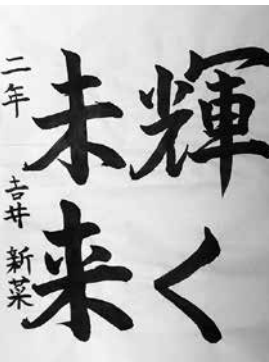 輝く
未来
二年 吉井 新菜